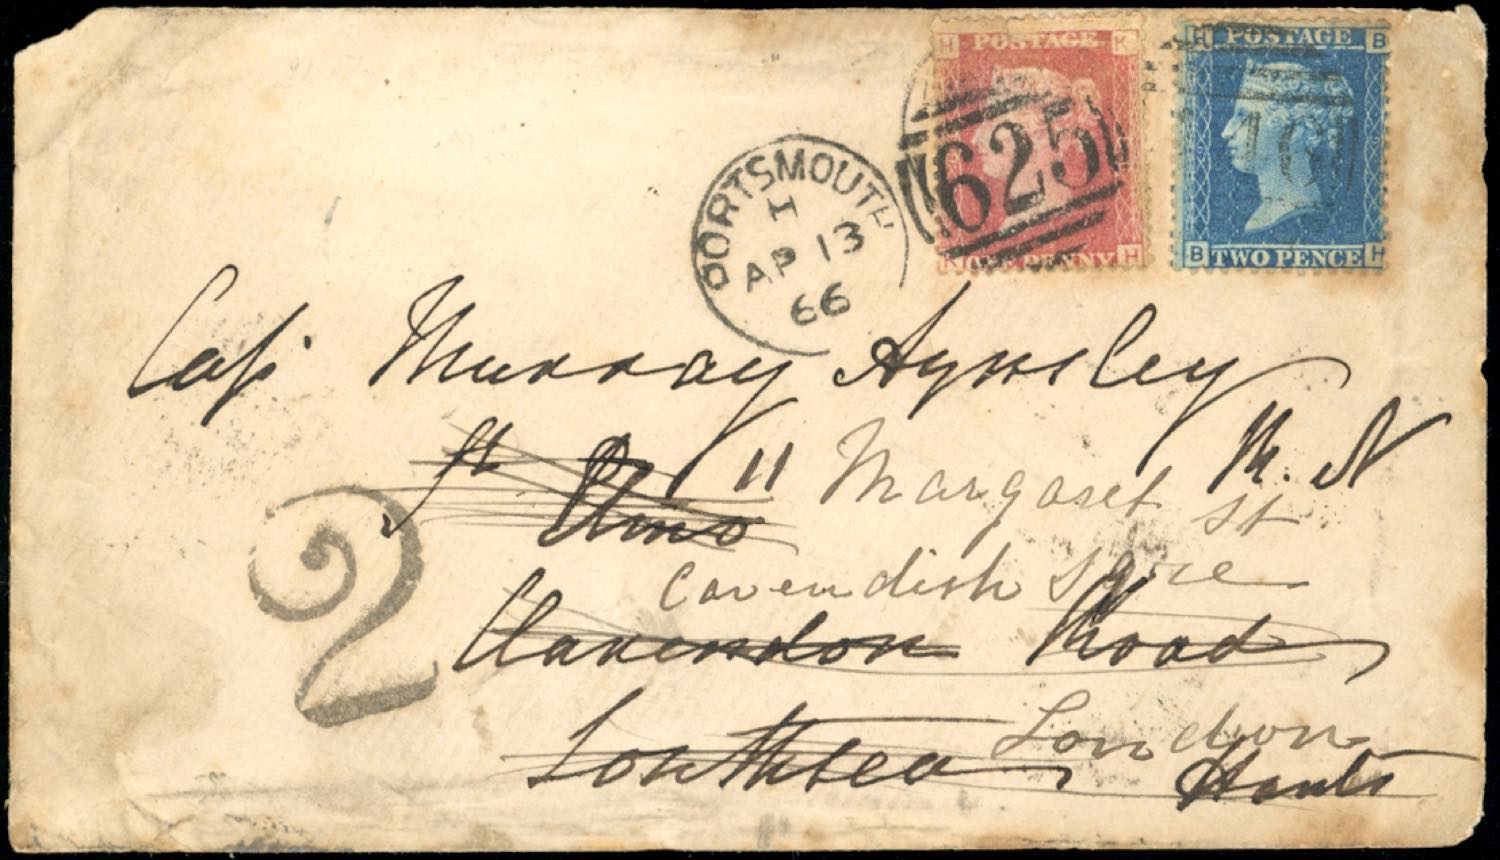 H POSTAGE K
625
K ONE PENNY H
H POSTAGE B
B TWO PENCE H
PORTSMOUTH
I
AP 13
66
Cap Murray Aynsley
R. N
St Elmo
11 Margaret St
Cavendish Sqre
Clarendon Road
London
Southsea Hants
2